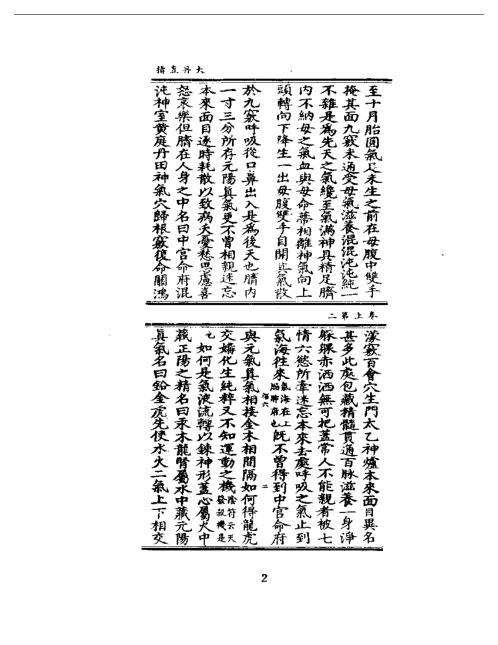 大丹直指
至十月胎圓氣足未生之前在母腹中雙手
掩其面九竅未通受母氣滋養混混沌沌純一
不雜是為先天之氣纔至氣滿神具精足臍
內不納母之氣血與母命蒂相離神氣向上
頭轉向下降生一出母腹雙手自開其氣散
於九竅呼吸從口鼻出入是為後天也臍內
一寸三分所存元陽真氣更不曾相親迷忘
本來面目逐時耗散以致病夭憂愁思慮喜
怒哀樂但臍在人身之中名曰中宮命府混
沌神室黃庭丹田神氣穴歸根竅復命關鴻
卷上第二
濛竅百會穴生門太乙神爐本來面目異名
甚多此處包藏精髓貫通百脈滋養一身淨
躶躶赤洒洒無可把蓋常人不能親者被七
情六慾所牽迷忘本來去處呼吸之氣止到
氣海往來氣海在上膈肺府也既不曾得到中宮命府
與元氣真氣相接金木相間隔如何得龍虎
交媾化生純粹又不知運動之機陰符云天發殺機是
也如何是氣液流轉以鍊神形蓋心屬火中
藏正陽之精名曰汞木龍腎屬水中藏元陽
真氣名曰鉛金虎先使水火二氣上下相交
2